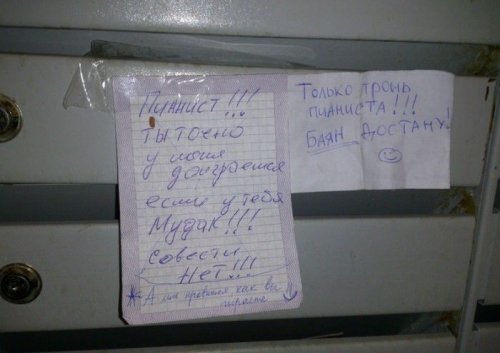 Пианист!!!
ты точно
у меня
доиграешся
если у тебя
Мудак!!!
совести
Нет!!!
* А мне нравится как вы
играете
Только тронь
пианиста!!!
Баян достану!